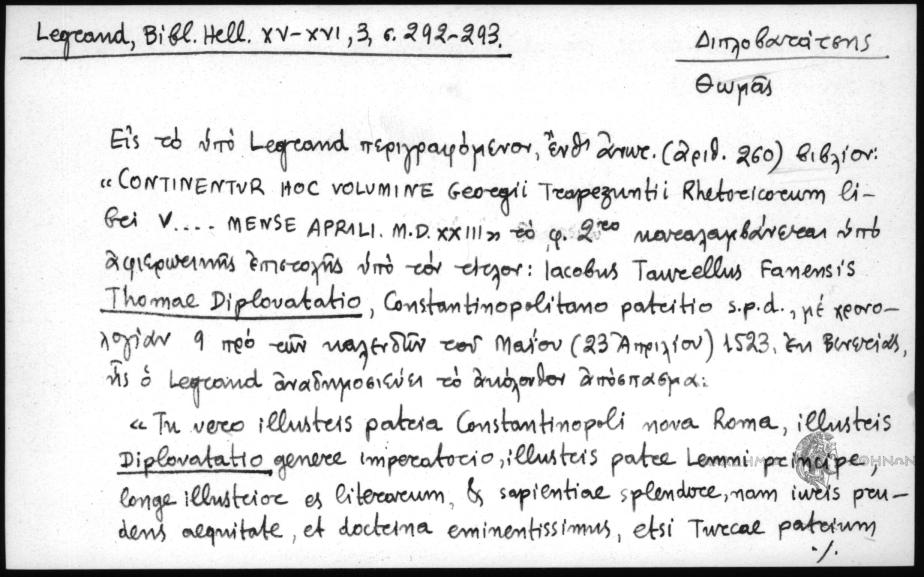 Legrand, Bibl. Hell. XV-XVI, 3, σ. 292-293.
Διπλοβατάτσης
Θωμᾶς
Εἰς τὸ ὑπὸ Legrand περιγραφόμενον, ἔνθ' ἀνωτ. (ἀριθ. 260) βιβλίον:
«CONTINENTVR HOC VOLUMINE Georgii Trapezuntii Rhetoricorum li-
bri V.... MENSE APRILI. M.D.XXIII» τὸ φ. 2ʳᵒ καταλαμβάνεται ὑπὸ
ἀφιερωτικῆς ἐπιστολῆς ὑπὸ τὸν τίτλον: Iacobus Taurellus Fanensis
Thomae Diplovatatio, Constantinopolitano patritio s.p.d., μὲ χρονο-
λογίαν 9 πρὸ τῶν καλενδῶν τοῦ Μαΐου (23 Ἀπριλίου) 1523, ἐκ Βενετίας,
ἧς ὁ Legrand ἀναδημοσιεύει τὸ ἀκόλουθον ἀπόσπασμα:
«Tu vero illustris patria Constantinopoli nova Roma, illustris
Diplovatatio genere imperatorio, illustris patre Lemmi principe,
longe illustrior es literarum, & sapientiae splendore, nam iuris pru-
dens aequitate, et doctrina eminentissimus, etsi Turcae patrium
./.